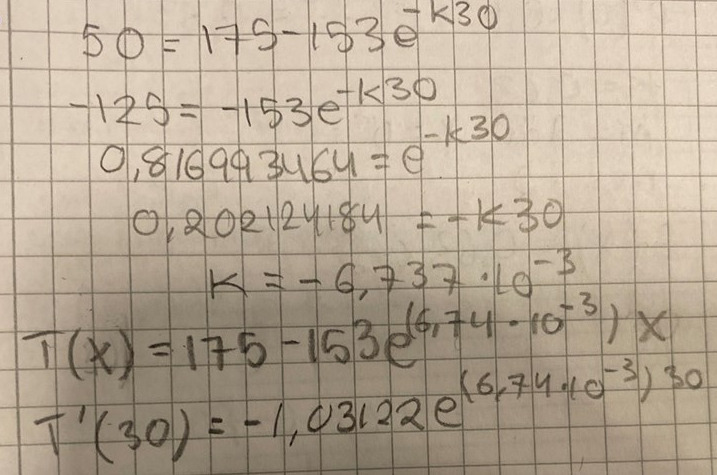 50 = 175-153e^-k30
-125 = -153e^-k30
0,816993464 = e^-k30
0,202124184 = -k30
k = -6,737 · 10^-3
T(x) = 175-153e^(6,74 · 10^-3)x
T'(30) = -1,03122e^(6,74·10^-3)30